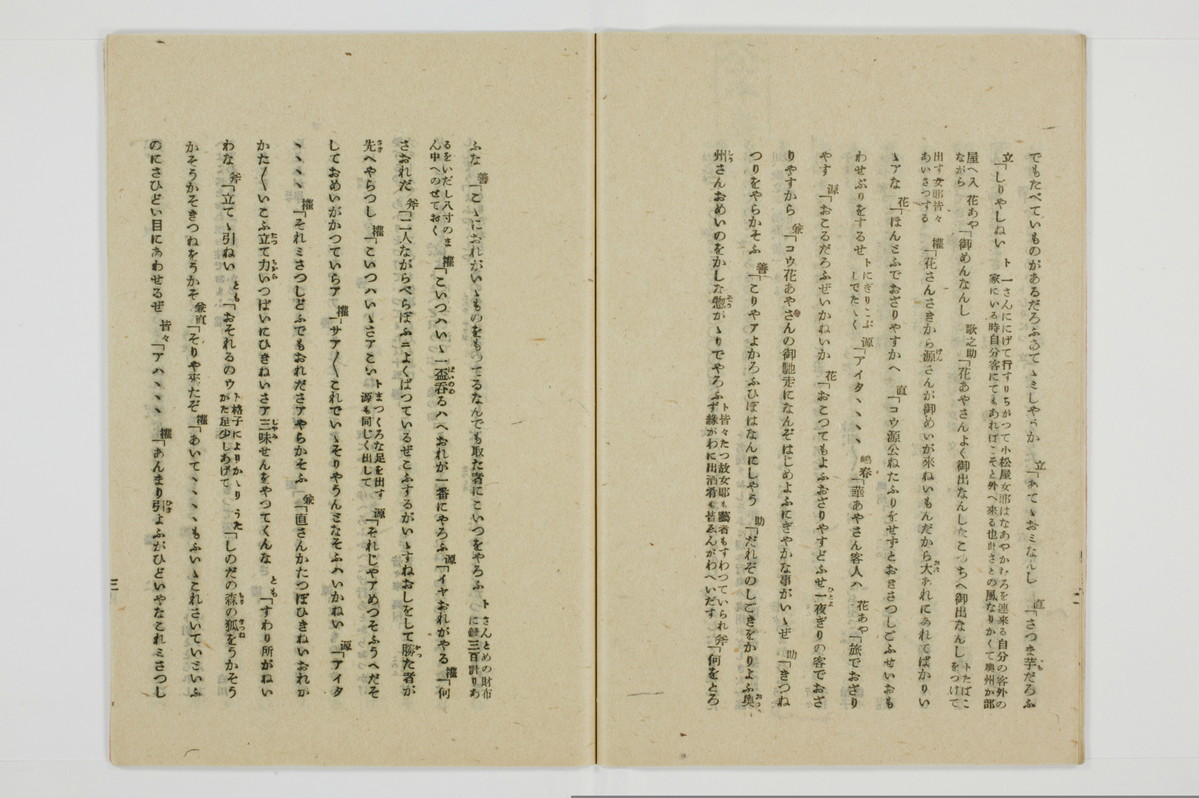 でもたべていものがあるだろふあてゝミしやうか 立「あてゝおミなんし 直「さつま芋だろふ
立「しりやしねい ト一さんににげて行すりちがつて小松屋女郎はなあやかむろを連来る自分の客外の
家にいる時自分客にてもあればこそと外へ来る也 さとの風なりかくて奥州か部
屋へ入 花あや「御めんなんし 歌之助「花あやさんよく御出なんしたこつちへ御出なんし トたばこをつけて
ながら
出す女郎皆々
あいさつする 権「花さんさきから源さんが御めいが来ねいもんだから大あれにあれてばかりい
ゝアな 花「ほんとふでおざりやすかへ 直「コウ源公ねたふりをせずとおきさつしごふせいおも
わせぶりをするせ トにぎりこぶ
しでたゝく 源「アイタヽヽヽ 嶋春「華あやさん客人へ 花あや「旅でおざり
やす 源「おこるだろふぜいかねいか 花「おこつてもよふおざりやすどふせ一夜ぎりの客でおざ
りやすから 兼「コウ花あやさんの御馳走になんぞはじめよふにぎやかな事がいゝぜ 助「きつね
つりをやらかそふ 善「こりやアよかろふひぼはなんにしやう 助「だれぞのしごきをかりよふ奥
州さんおめいのをかしな惣がゝりでやろふ ト皆々たつ故女郎も藝者もすわつていられ
ず縁がわに出酒肴も皆ゑんがわへいだす 斧「何をとろ
ふな 善「こゝにおれがいゝものをもつてるなんでも取た者にこいつをやろふ トさんとめの財布
に銭三百計りあ
るをいだし八寸のま
ん中へのせておく 権「こいつハいゝ一盃呑るハへおれが一番にやろふ 源「イヤおれがやる 権「何
さおれだ 斧「二人ながらべらぼふニよくばつているぜこふするがいゝすねおしをして勝た者が
先へやらつし 権「こいつハいゝさアこい トまつくろな足を出す
源も同じく出して 源「それじやアめつそふうへだそ
しておめいがかつていらア 権「サア〳〵これでいゝそりやうんとなそふハいかねい 源「アイタ
ヽヽヽヽ 権「それミさつしどふでもおれださアやらかそふ 兼「直さんかたつぽひきねいおれが
かた〳〵いこふ立て力いつぱいにひきねいさア三味せんをやつてくんな とも「すわり所がねい
わな 斧「立てゝ引ねい とも「おそれるのウ ト格子によりかゝり
がた足少しあげて うた「しのだの森の狐をうかそう
かそうかそきつねをうかそ 兼直「そりや来たぞ 権「あいてヽヽヽヽもふいゝこれさいていといふ
のにさひどい目にあわせるぜ 皆々「アハヽヽヽ 権「あんまり引よふがひどいやなこれミさつし
三